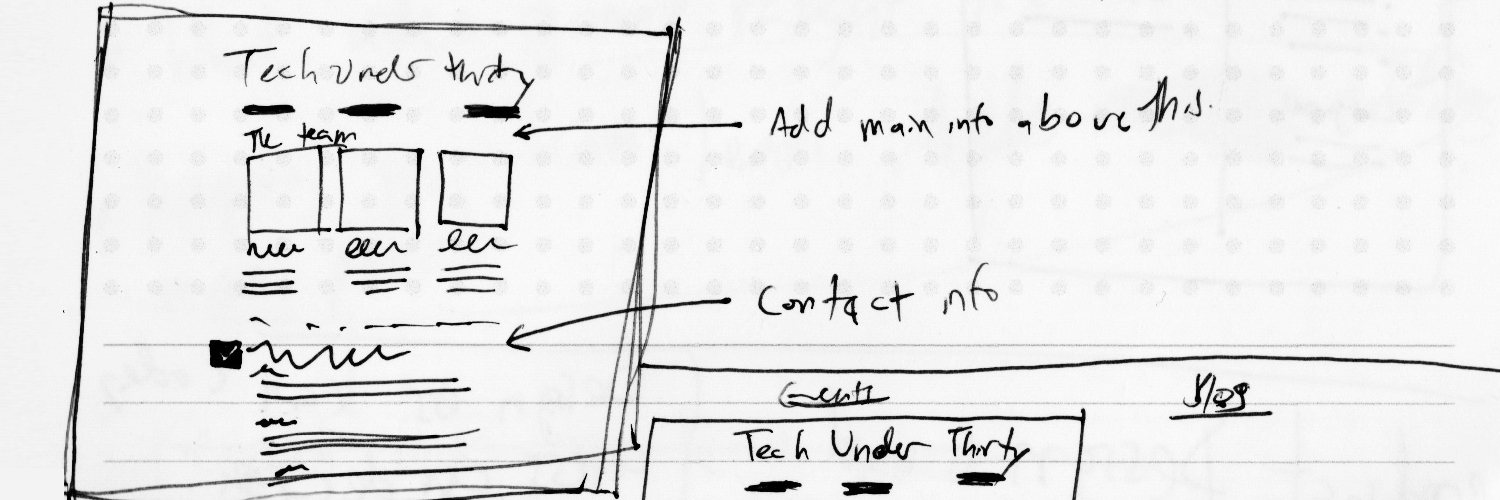 Tech Under thirty
The team
Add main info above this.
Contact info
Events
Blog
Tech Under Thirty